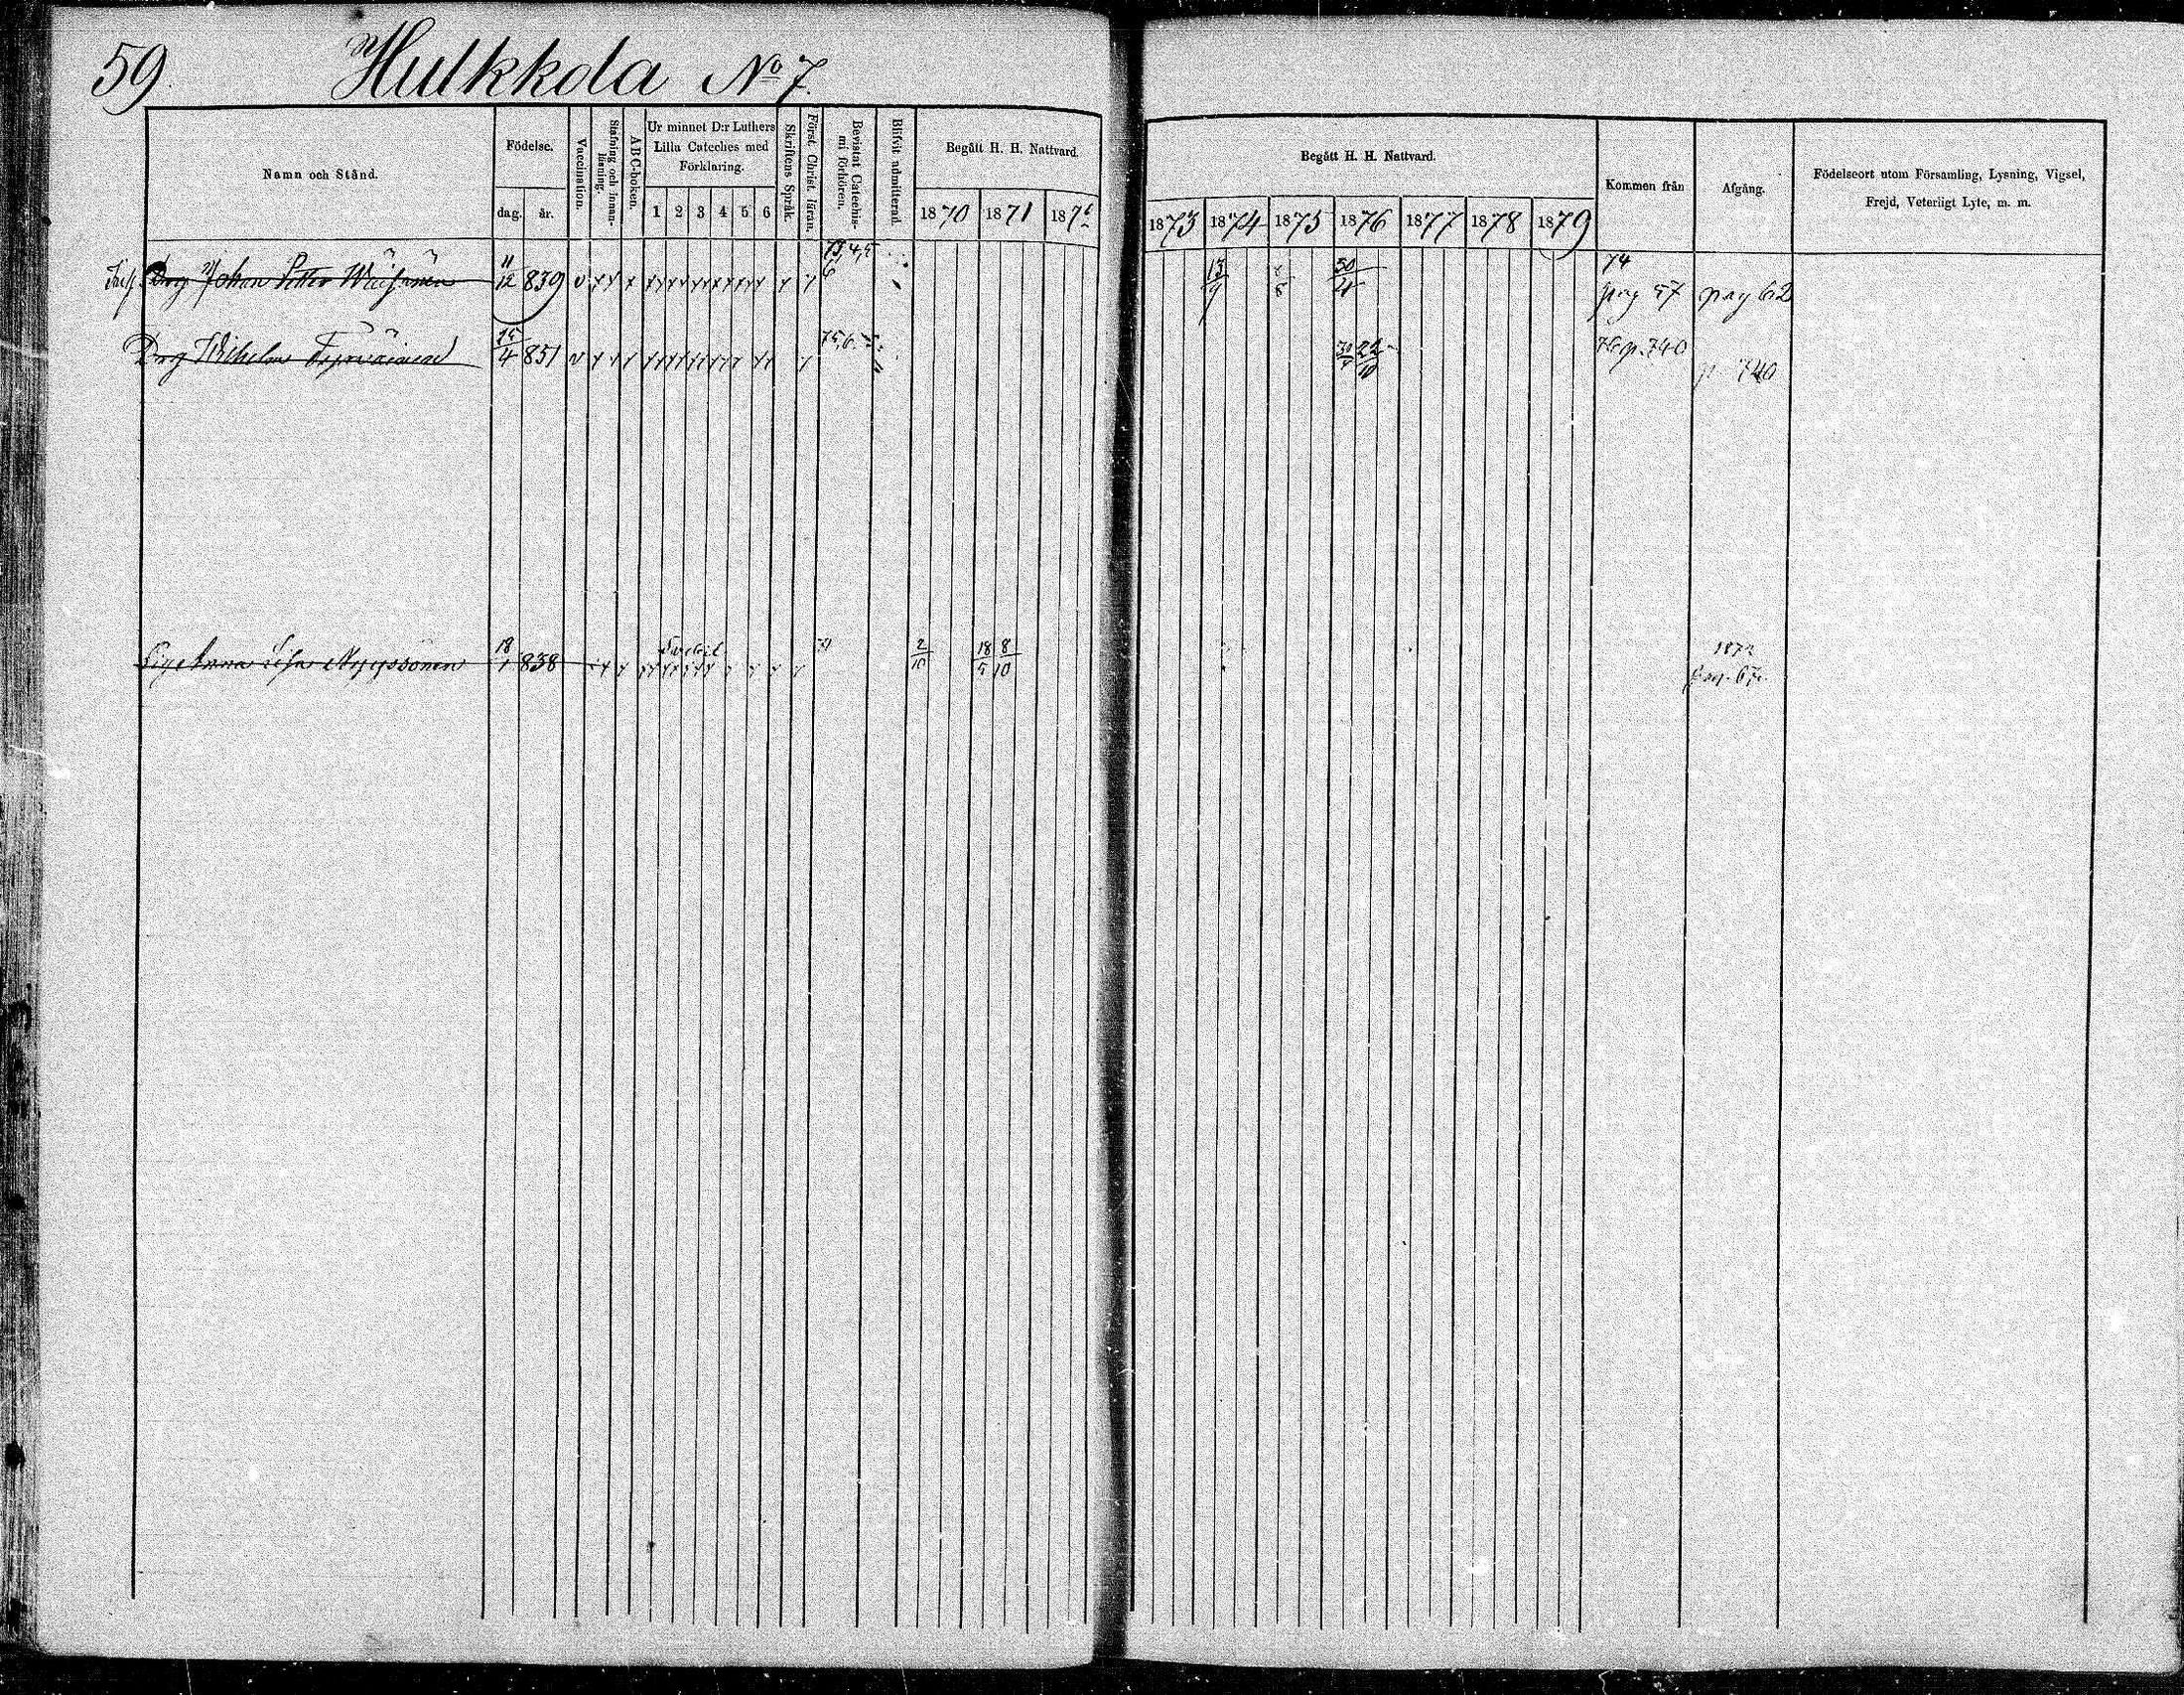 59. Hulkkola No 7.
Namn och Stånd.
Födelse.
dag. år.
Vaccination.
Stafning och innan-
läsning.
ABC-boken.
Ur minnet D:r Luthers
Lilla Cateches med
Förklaring.
1 2 3 4 5 6
Skriftens Språk.
Först. Christ. läran.
Bevistat Catechis-
mi förhören.
Blifvit admitterad.
Begått H. H. Nattvard.
1870 1871 187
Begått H. H. Nattvard.
1873 1874 1875 1876 1877 1878 1879
Kommen från
Afgång.
Födelseort utom Församling, Lysning, Vigsel,
Frejd, Veterligt Lyte, m. m.
Drg Johan Petter Wäisänen 11/12 839 v 73,4,5 6 13/9 30/4 74 pag 57 pag 62
Drg Wilhelm 15/4 851 v 75,6 22/10 76 p. 740 p 740
Pig Anna Lisa Nyyssönen 18/1 838 2/10 18/5 8/10 1872 pag. 67